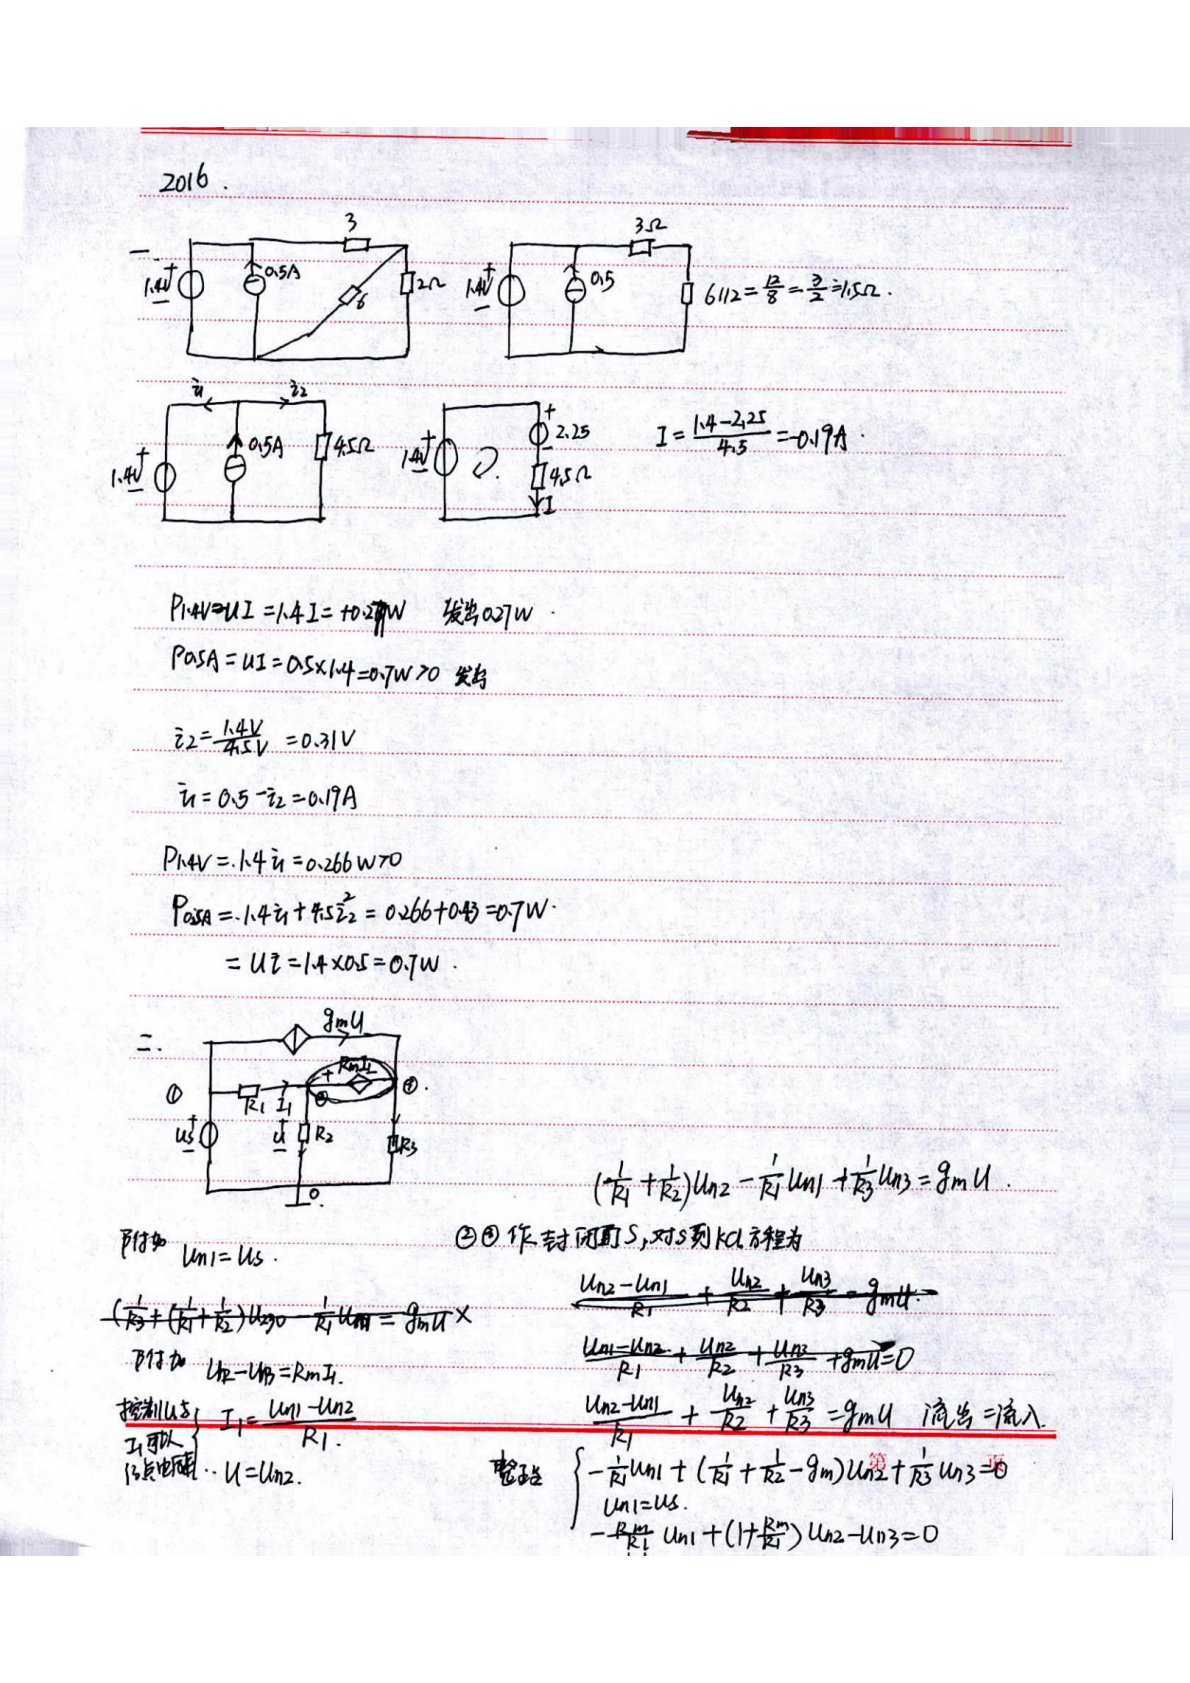 2016.
一.
1.4V
+
-
0.5A
3
6
2Ω
1.4V
+
-
0.5
3Ω
6//2=12/8=3/2=1.5Ω.
i1
i2
1.4V
+
-
0.5A
4.5Ω
1.4V
+
-
+
2.25
-
4.5Ω
I
I=(1.4-2.25)/4.5=-0.19A.
P1.4V=UI=1.4I=+0.27W 发出0.27W.
P0.5A=UI=0.5×1.4=0.7W>0 发出
i2=1.4V/4.5V=0.31V
i1=0.5-i2=0.19A
P1.4V=1.4i1=0.266W>0
P0.5A=1.4i1+4.5i2²=0.266+0.43=0.7W.
=Ui=1.4×0.5=0.7W.
二.
gmU
①
R1
I1
+
RmI1
②
us
+
-
+
u
-
R2
R3
0
(1/R1+1/R2)Un2-1/R1Un1+1/R3Un3=gmU.
附加 Un1=Us.
作封闭面S,对S列KCL方程为
(Un2-Un1)/R1+Un2/R2+Un3/R3=gmU.
×
(Un1-Un2)/R1+Un2/R2+Un3/R3+gmU=0
附加 Un2-Un3=RmI1.
(Un2-Un1)/R1+Un2/R2+Un3/R3=gmU 流出=流入.
I1=(Un1-Un2)/R1.
U=Un2.
-1/R1Un1+(1/R1+1/R2-gm)Un2+1/R3Un3=0
第 页
Un1=Us.
-Rm/R1Un1+(1+Rm/R1)Un2-Un3=0